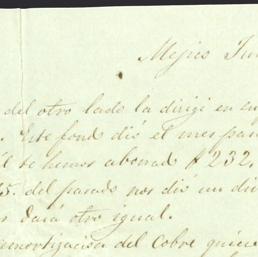 Mejico Jun
del otro lado la dirigí en
. Este fondo dió el mes pasa
se hemos abonado $232,
5. del pasado nos dió un div
dará otro igual.
amortizacion del Cobre quie